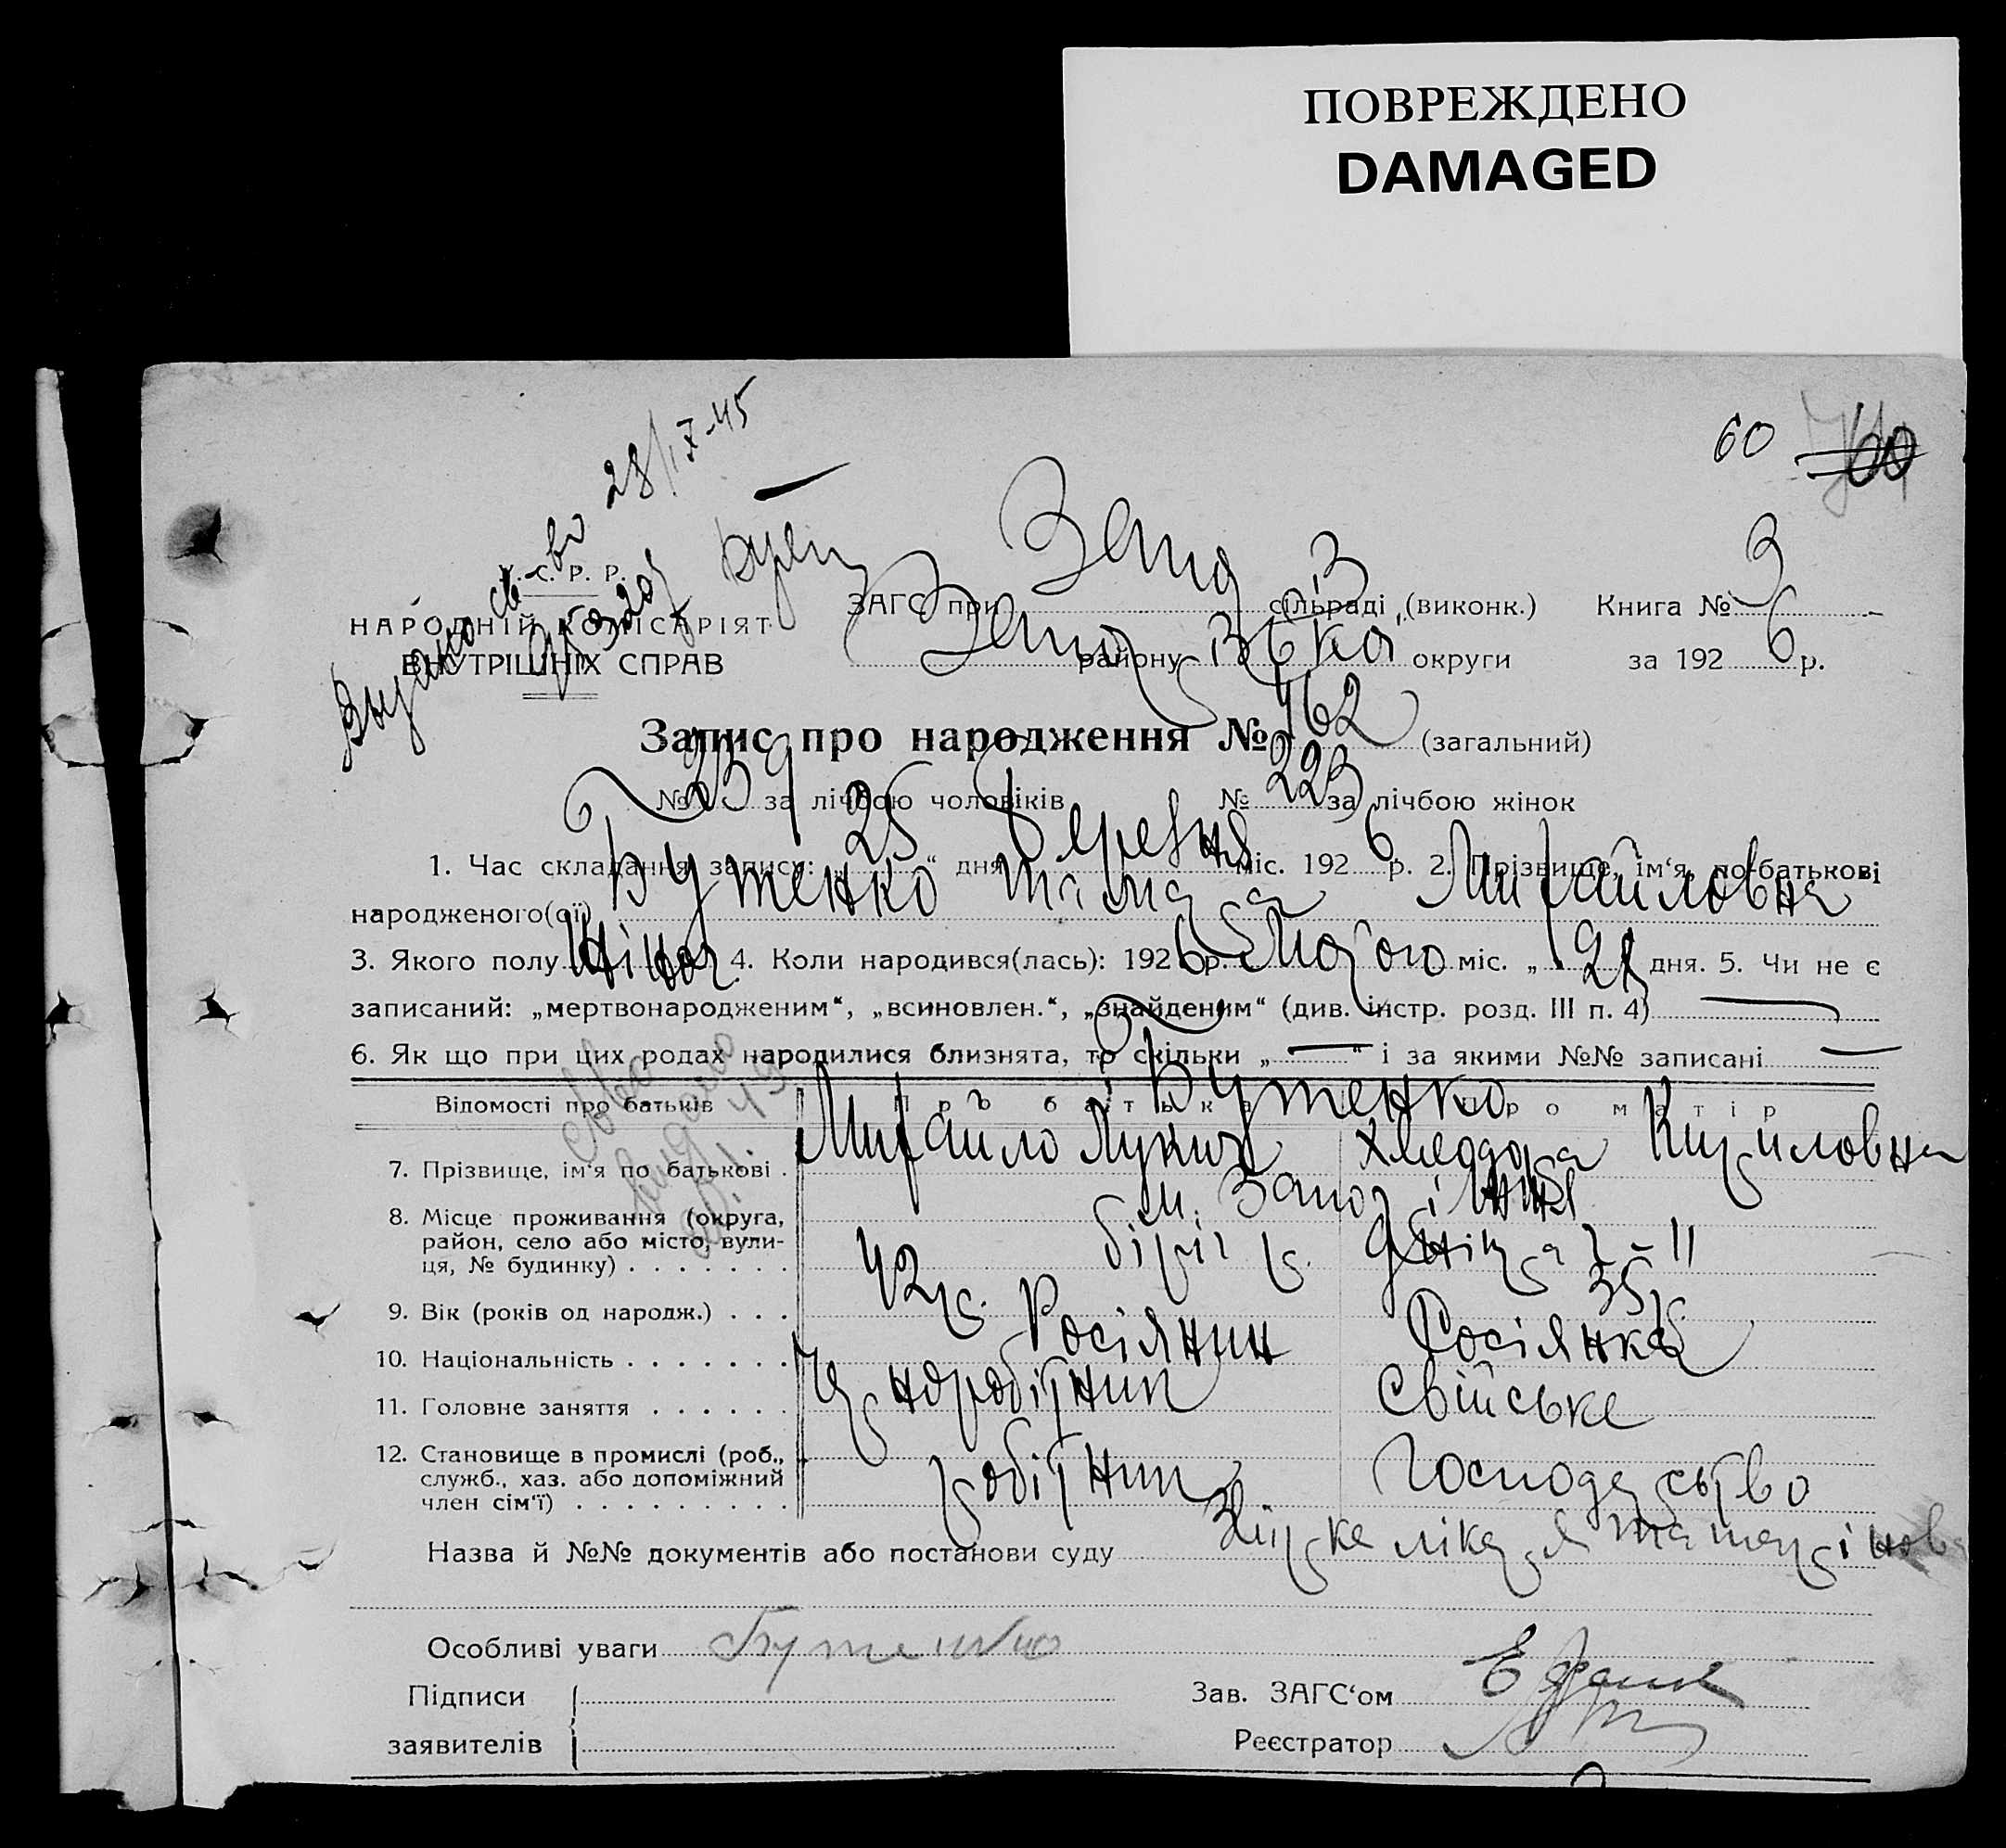 ПОВРЕЖДЕНО
DAMAGED
60 60
28/IX-45
У. С. Р. Р.
НАРОДНІЙ КОМІСАРІЯТ
ВНУТРІШНІХ СПРАВ
ЗАГС при Запоріз сільраді (виконк.) Книга № 3
Запорізька району округи за 1926 р.
Запис про народження № 462 (загальний)
№ 239 за лічбою чоловіків № 223 за лічбою жінок
1. Час складання запису: „ 25 “ дня березня міс. 1926 р. 2. Прізвище, ім‘я, по-батькові
народженого(ої) Бутенко Тамара Михайловна
3. Якого полу жіноч. 4. Коли народився(лась): 1926 р. Лютого міс. „ 21 дня. 5. Чи не є
записаний: „мертвонародженим“, „всиновлен.“, „знайденим“ (див. інстр. розд. III п. 4) —
6. Як що при цих родах народилися близнята, то скільки „ — “ і за якими №№ записані —
Відомості про батьків Про батька Про матір
Бутенко
7. Прізвище, ім‘я по батькові . Михайло Лукич Хведора Кириловна
8. Місце проживання (округа, район, село або місто, вули-ця, № будинку) . . . . . . . м. Запоріжжя
9. Вік (років од народж.) . . . 42 р. 35 р.
10. Національність . . . . . . . Росіянин Росіянка
11. Головне заняття . . . . . . Чорноробітник Свійське
12. Становище в промислі (роб., служб., хаз. або допоміжний член сім‘ї) . . . . . . . . . робітник господарство
Назва й №№ документів або постанови суду лікаря
Особливі уваги Бутенко
Підписи
заявителів
Зав. ЗАГС‘ом
Реєстратор